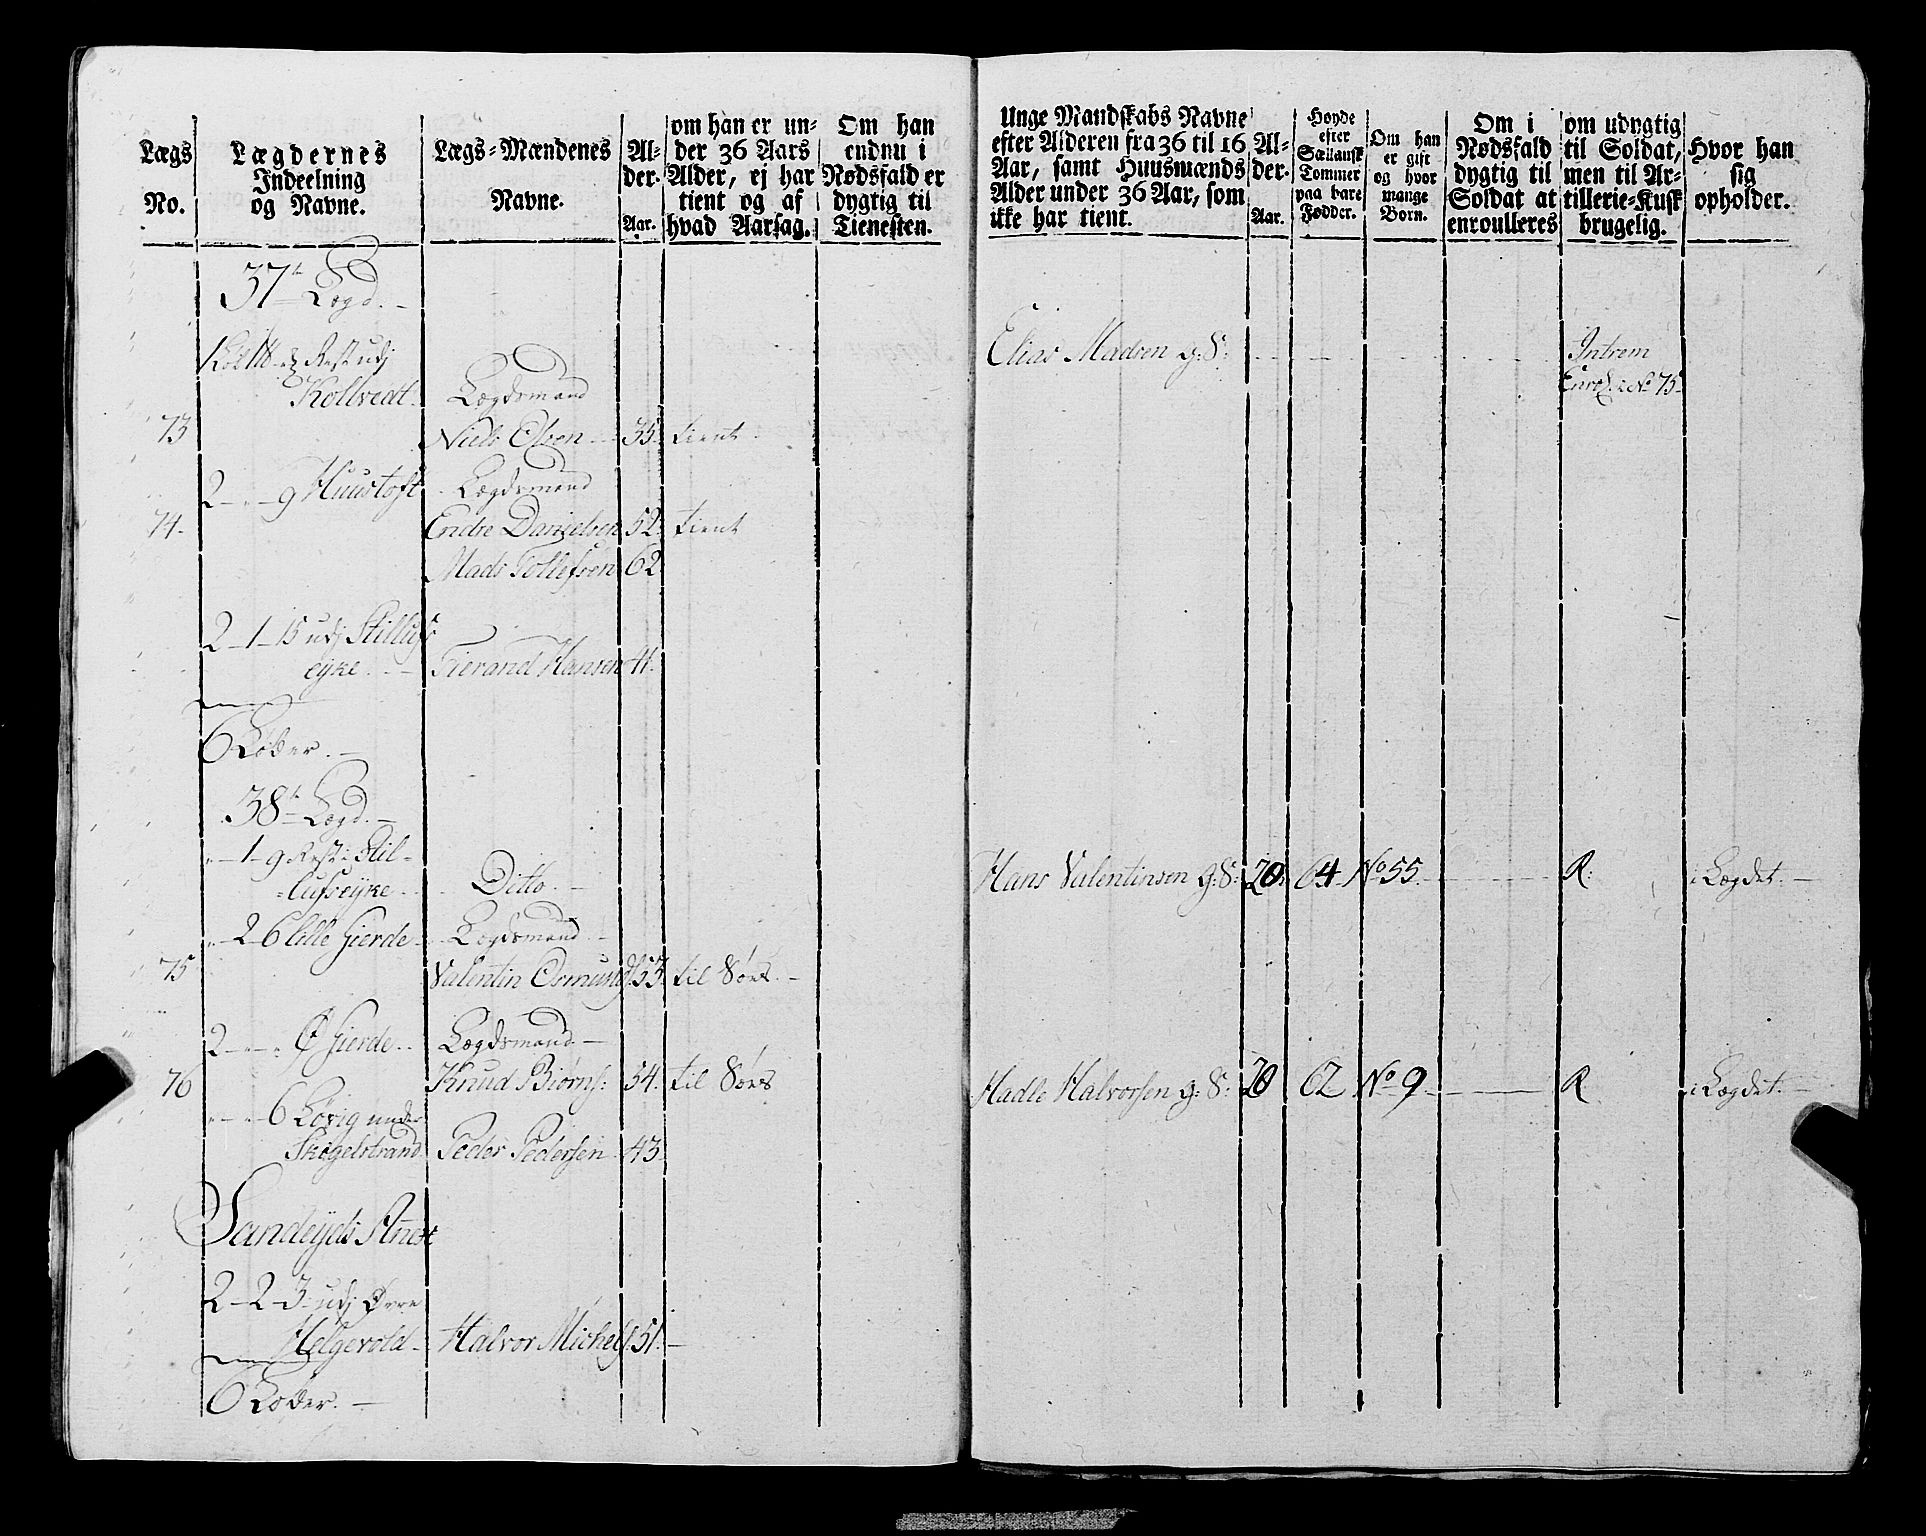 Lægs
No.
Lægdernes
Indeelning
og Navne.
Lægs-Mændenes
Navne.
Al-
der.
Aar.
om han er un-
der 36 Aars
Alder, ej har
tient og af
hvad Aarsag.
Om han
endnu i
Nødsfald er
dygtig til
Tienesten.
37te Lægd.
Rest udj
Kollvedt. Lægdsmand
73 Niels Olsen 35. tient
2 - 9 Huustoft Lægdsmand
74. Endre Danielsen 52. tient
Mads Tollefsen 62
2-1-15 udj Stillufs
eyke. Tierand Hansen 41.
6 Løber.
38te Lægd.
1-9 Rest i Stil-
lufseyke Ditto.
2-6 lille Gierde Lægdsmand
75 Valentin Osmunds 53. til Sørs.
2 Ø Gierde Lægdsmand
76 Knud Biørns: 54. til Sørs
6 under
Skogelstrand Peder Pedersen 43
Sandeyds Anext
2-2-3 udj Øvre
Helgevold Halvor Michels 51.
6 Løber.
Unge Mandskabs Navne
efter Alderen fra 36 til 16
Aar, samt Huusmænds
Alder under 36 Aar, som
ikke har tient.
Al-
der.
Aar.
Høyde
efter
Sællansk
Tommer
paa bare
Fødder.
Om han
er gift
og hvor
mange
Børn.
Om i
Nødsfald
dygtig til
Soldat at
enroulleres
om udygtig
til Soldat,
men til Ar-
tillerie-Kusk
brugelig.
Hvor han
sig
opholder.
Elias Madsen g:S: Intrem
No 75
Hans Valentinsen g:S: 20. 64 No 55. R. i Lægdet.
Hadle Halvorsen g:S: 20 62 No 9 R. i Lægdet.